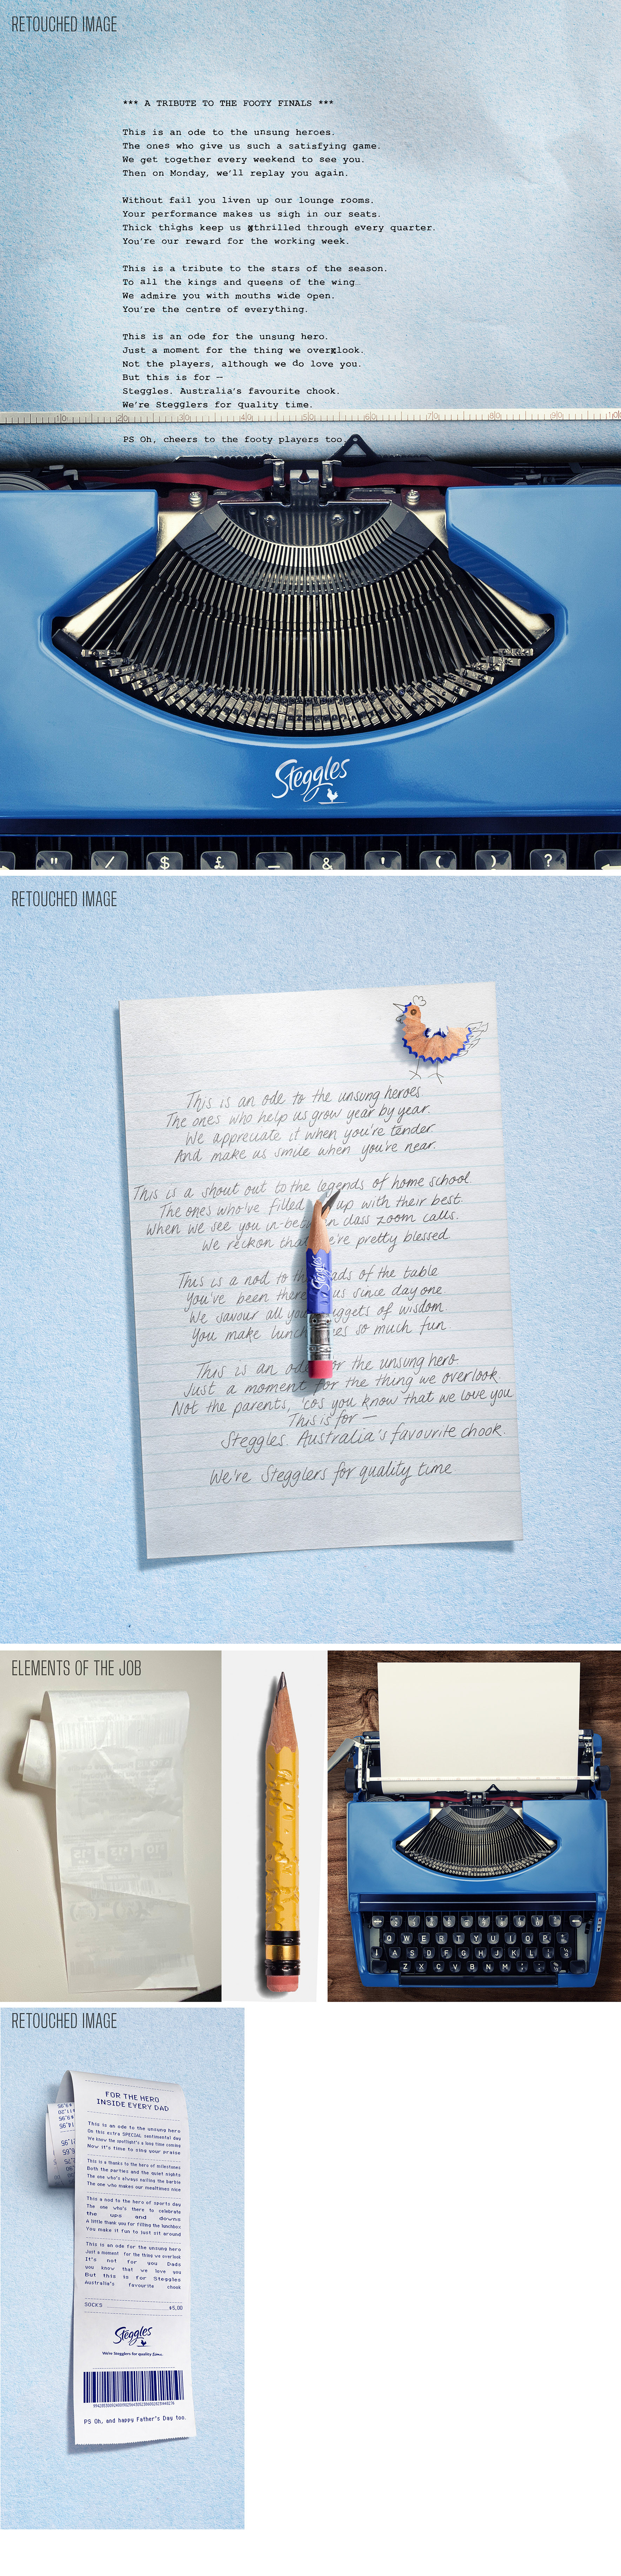 RETOUCHED IMAGE
*** A TRIBUTE TO THE FOOTY FINALS ***
This is an ode to the unsung heroes.
The ones who give us such a satisfying game.
We get together every weekend to see you.
Then on Monday, we'll replay you again.
Without fail you liven up our lounge rooms.
Your performance makes us sigh in our seats.
Thick thighs keep us thrilled through every quarter.
You're our reward for the working week.
This is a tribute to the stars of the season.
To all the kings and queens of the wing.
We admire you with mouths wide open.
You're the centre of everything.
This is an ode for the unsung hero.
Just a moment for the thing we overlook.
Not the players, although we do love you.
But this is for —
Steggles. Australia's favourite chook.
We're Stegglers for quality time.
10 20 30 40 50 60 70 80 90 100
PS Oh, cheers to the footy players too.
Steggles
" / $ £ _ & ' ( ) ?
RETOUCHED IMAGE
This is an ode to the unsung heroes
The ones who help us grow year by year.
We appreciate it when you're tender
And make us smile when you're near.
This is a shout out to the legends of home school
The ones who've filled up with their best.
When we see you in-between class zoom calls.
We reckon that we're pretty blessed
This is a nod to the heads of the table
You've been there us since day one
We savour all your nuggets of wisdom
You make lunch so much fun
This is an ode for the unsung hero
Just a moment for the thing we overlook
Not the parents, 'cos you know that we love you
This is for —
Steggles. Australia's favourite chook.
We're Stegglers for quality time
Steggles
ELEMENTS OF THE JOB
Q W E R T Y U I O P
A S D F G H J K L
Z X C V B N M
RETOUCHED IMAGE
FOR THE HERO
INSIDE EVERY DAD
This is an ode to the unsung hero
On this extra SPECIAL sentimental day
We know the spotlight's a long time coming
Now it's time to sing your praise
This is a thanks to the hero of milestones
Both the parties and the quiet nights
The one who's always nailing the barbie
The one who makes our mealtimes nice
This a nod to the hero of sports day
The one who's there to celebrate
the ups and downs
A little thank you for filling the lunchbox
You make it fun to just sit around
This is an ode for the unsung hero
Just a moment for the thing we overlook
It's not for you Dads
you know that we love you
But this is for Steggles
Australia's favourite chook
SOCKS $5.00
Steggles
We're Stegglers for quality time.
PS Oh, and happy Father's Day too.